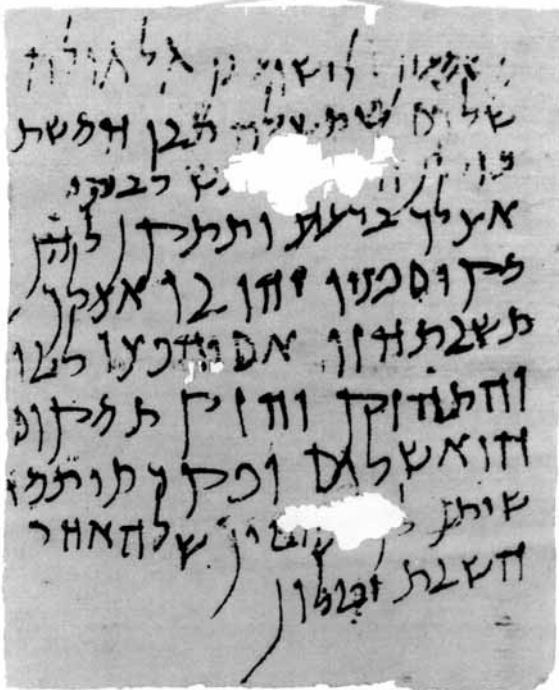 משמעון לישוע בן גלגולה
שלום שתשלח תבו חמשת
כורין
אצלך בדעת ותתקן להן
מקום פנוי יהו בו אצלך
תשבת הזו אם יחפצו לבו
והתחזק וחזק תמקום
הוא שלום ופקדתי תמי
שיתן לך שלה אחר
השבת יטלון